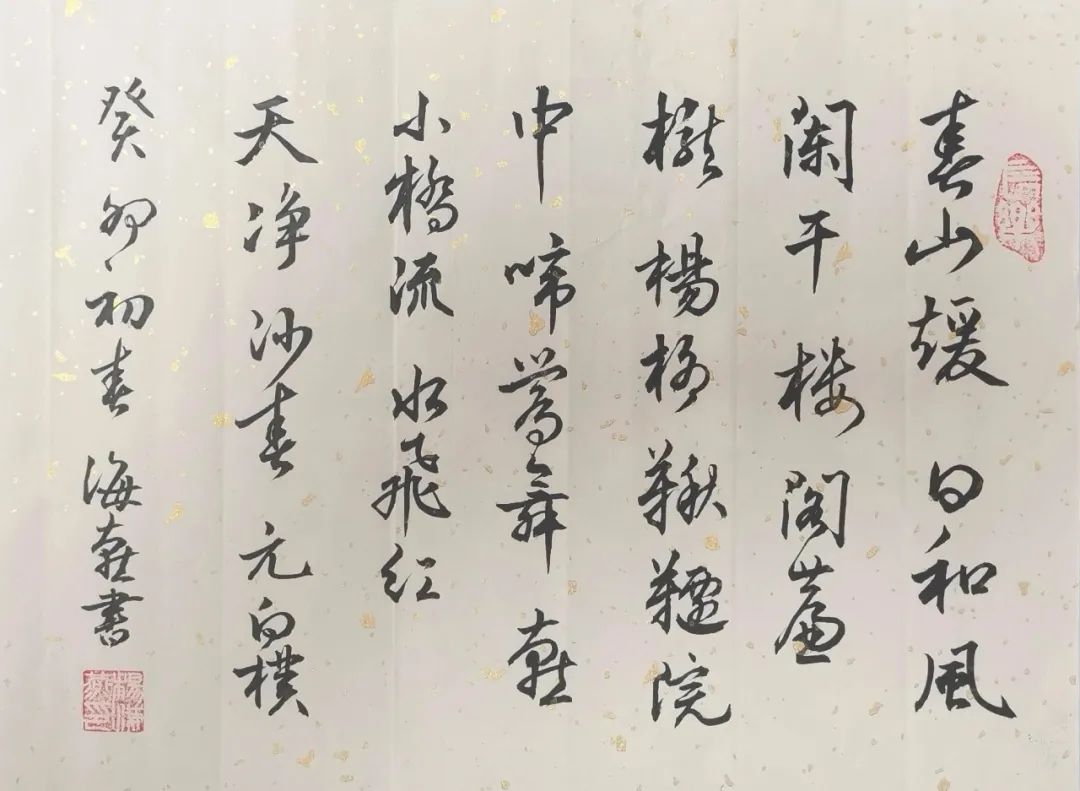 春山煖日和風
闌干楼閣簾
櫳楊柳鞦韆院
中啼鶯舞燕
小橋流水飛紅
天净沙春元白樸
癸卯初春海燕書